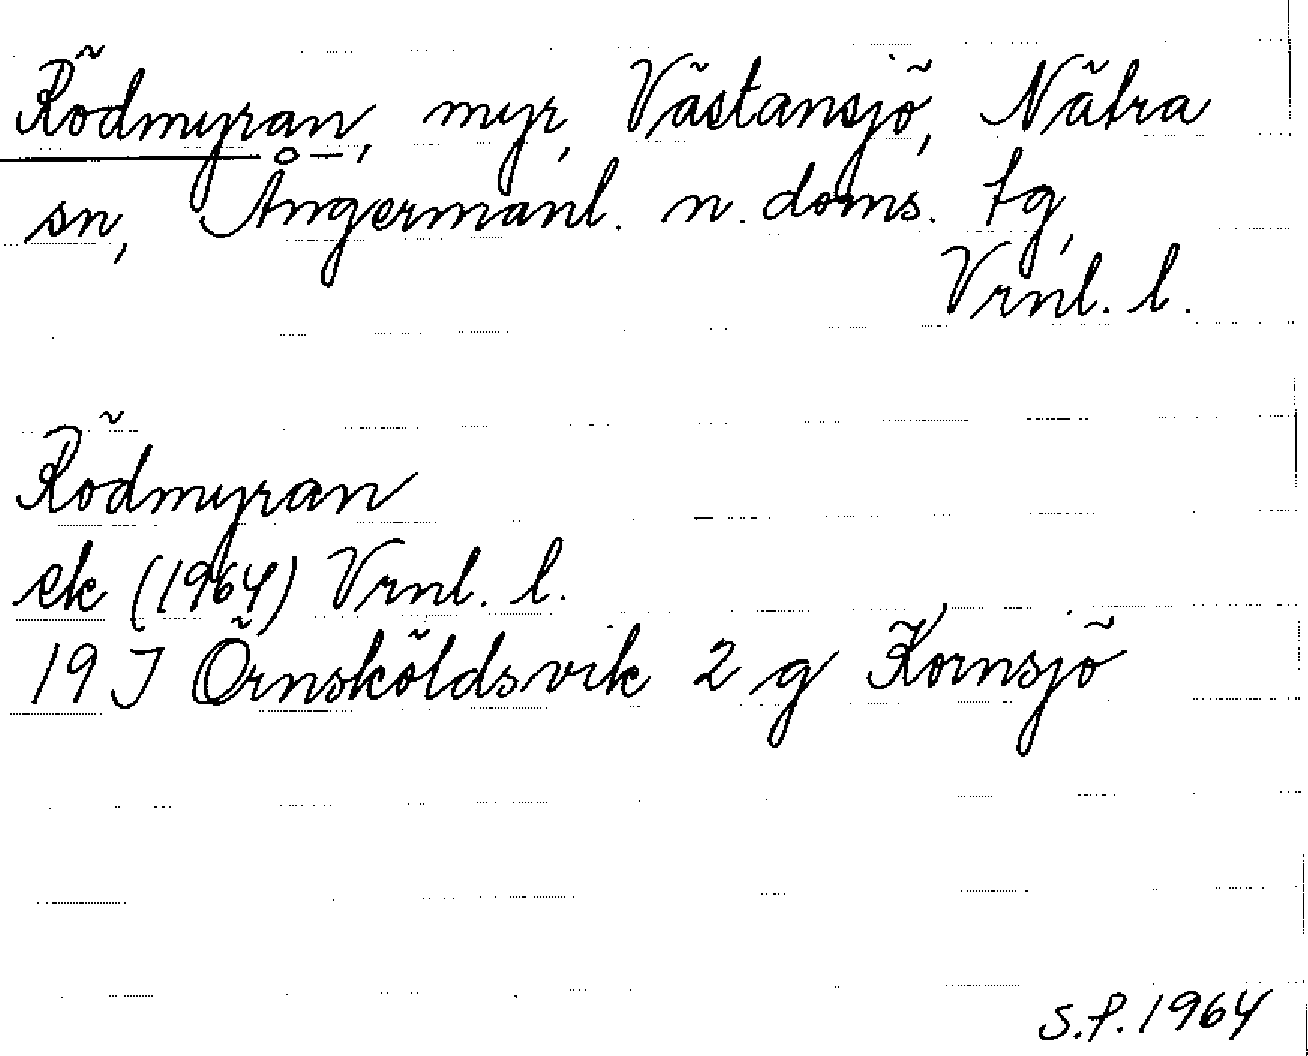 Rödmyran, myr, Västansjö, Nätra
sn, Ångermanl. n. doms. tg,
Vrnl. l.
Rödmyran
ek (1964) Vrnl. l.
19 J Örnsköldsvik 2 g Kornsjö
S.P. 1964